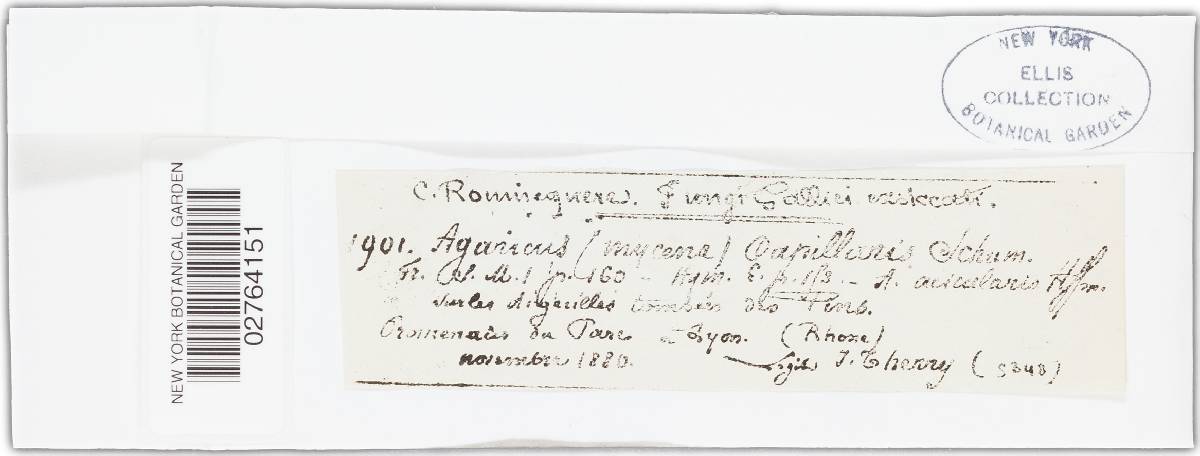 NEW YORK
ELLIS
COLLECTION
BOTANICAL GARDEN
NEW YORK BOTANICAL GARDEN
02764151
C. Roumeguere. Fungi Gallici exsiccati.
1901. Agaricus (mycena) Capillaris Schum.
Fr. S. M. 1 p. 160 - Hym. E p. 153 - A. acicularis Hffm.
sur les Aiguilles tombées des Pins.
Promenades du Parc a Lyon. (Rhone)
novembre 1880. Legit J. Therry (5348)